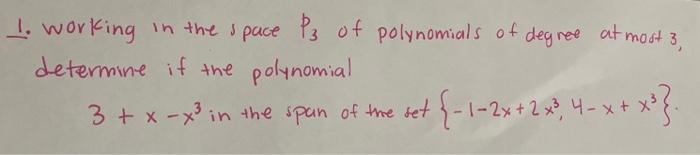 1. working in the space P₃ of polynomials of degree at most 3,
determine if the polynomial
3 + x - x³ in the span of the set {-1-2x+2x³, 4-x+x³}.